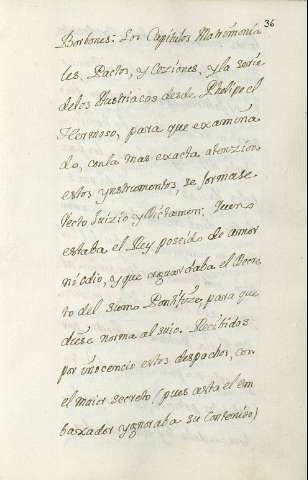 36
Borbones: Los Capitulos Matrimonia
les, Pactos, y Coziones, y la serie
delos Austriacos desde Phelipo el
Hermoso, para que examina
do, conla mas exacta atenzion
estos ynstrumentos, se formase
recto Juizio y Dictamen: que no
estaba el Rey poseido de amor
ni odio, y que aguardaba el decre
to del sumo Pontifize, para que
diese norma al suio. Recibidos
por ynocencio estos despachos, con
el maior secreto (pues asta el em
baxador ygnoraba su Contenido)